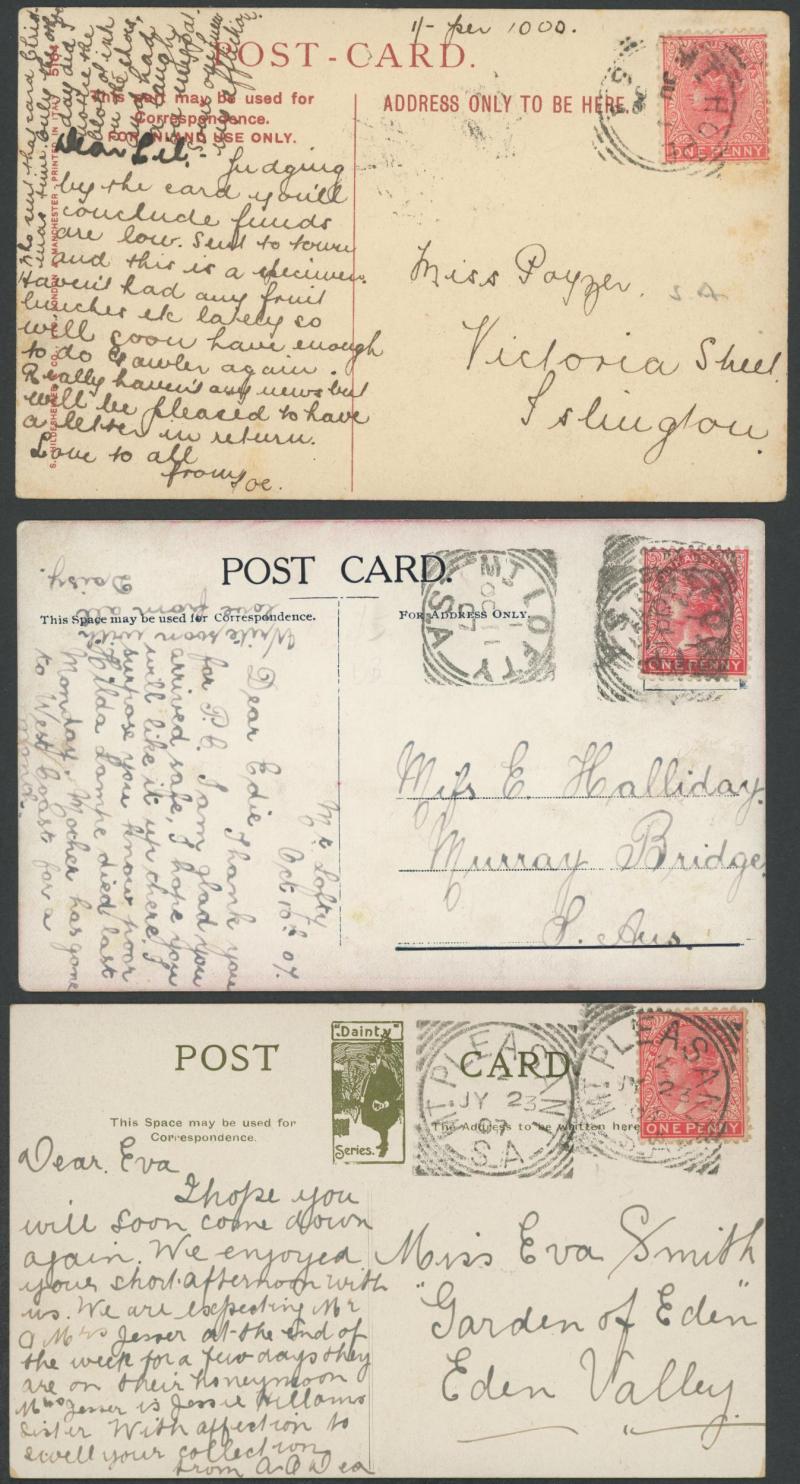 1/- per 1000.
POST-CARD.
This part may be used for
Correspondence.
FOR INLAND USE ONLY.
ADDRESS ONLY TO BE HERE.
ONE PENNY
Dear Lil.
Judging
by the card you'll
conclude funds
are low. Sent to town
and this is a specimen.
Haven't had any fruit
lunches etc lately so
will soon have enough
to do Gawler again.
Really haven't any news but
will be pleased to have
a letter in return.
Love to all
from Joe.
Miss Poyzer.
S A
Victoria Street
Islington.
POST CARD.
This Space may be used for Correspondence.
For Address Only.
MT LOFTY
OC 11
07
S.A
ONE PENNY
Mt. Lofty
Oct 10th 07.
Dear Edie
Thank you
for P.C. I am glad you
arrived safe, I hope you
will like it up there. I
suppose you know poor
Hilda Lampe died last
Monday. Mother has gone
to West Coast for a
month.
Write soon with
love from all
Daisy.
Miss E. Halliday.
Murray Bridge.
S. Aus.
POST CARD.
"Dainty"
Series.
This Space may be used for
Correspondence.
The Address to be written here
MT. PLEASANT
2
JY 23
07
S.A
MT. PLEASANT
2
JY 23
ONE PENNY
Dear Eva
I hope you
will soon come down
again. We enjoyed
your short afternoon with
us. We are expecting Mr
& Mrs Jesser at the end of
the week for a few days they
are on their honeymoon
Mrs Jesser is Jessie Williams
sister With affection to
swell your collection
from
Miss Eva Smith
"Garden of Eden"
Eden Valley.